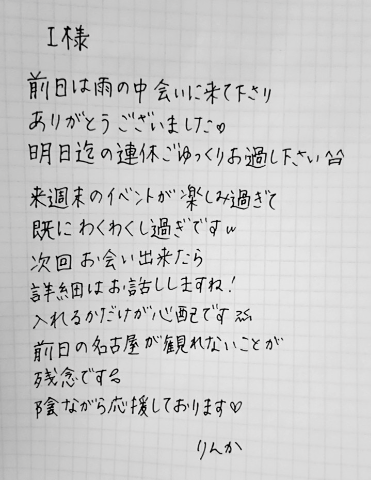 I様
前日は雨の中会いに来て下さり
ありがとうございました♡
明日迄の連休ごゆっくりお過し下さい^^
来週末のイベントが楽しみ過ぎて
既にわくわくし過ぎですw
次回お会い出来たら
詳細はお話ししますね!
入れるかだけが心配です
前日の名古屋が観れないことが
残念です
陰ながら応援しております♡
りんか